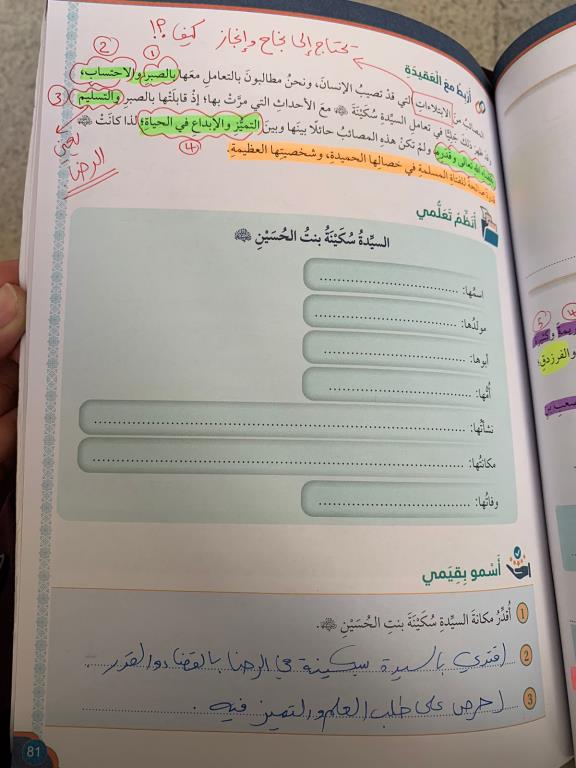 تحتاج إلى نجاح وإنجاز كيف؟!
أَرْبِطُ مَعَ العَقيدَةِ
① ②
المصائبُ منَ الابتلاءاتِ التي قدْ تصيبُ الإنسانَ، ونحنُ مطالبونَ بالتعاملِ معَها بالصبرِ والاحتسابِ،
وقدْ ظهرَ ذلكَ جليًّا في تعاملِ السيّدةِ سُكَيْنَةَ معَ الأحداثِ التي مرَّتْ بها؛ إذْ قابلَتْها بالصبرِ والتسليمِ ③
لقضاءِ اللهِ تعالى وقدرِهِ، ولمْ تكنْ هذهِ المصائبُ حائلًا بينَها وبينَ التميُّزِ والإبداعِ في الحياةِ؛ لذا كانَتْ
④
قدوةً صالحةً للفتاةِ المسلمةِ في خصالِها الحميدةِ، وشخصيتِها العظيمةِ.
يعني
الرضا
أُنَظِّمُ تَعَلُّمي
السيّدةُ سُكَيْنَةُ بنتُ الحُسَيْنِ
اسمُها:
مولدُها:
أبوها:
أمُّها:
نشأتُها:
مكانتُها:
وفاتُها:
أَسْمو بِقِيَمي
1 أُقدِّرُ مكانةَ السيّدةِ سُكَيْنَةَ بنتِ الحُسَيْنِ.
2 اقتدي بالسيدة سكينة في الرضا بالقضاء والقدر
3 احرص على طلب العلم والتميز فيه.
81
④
⑤
والفرزدقِ،